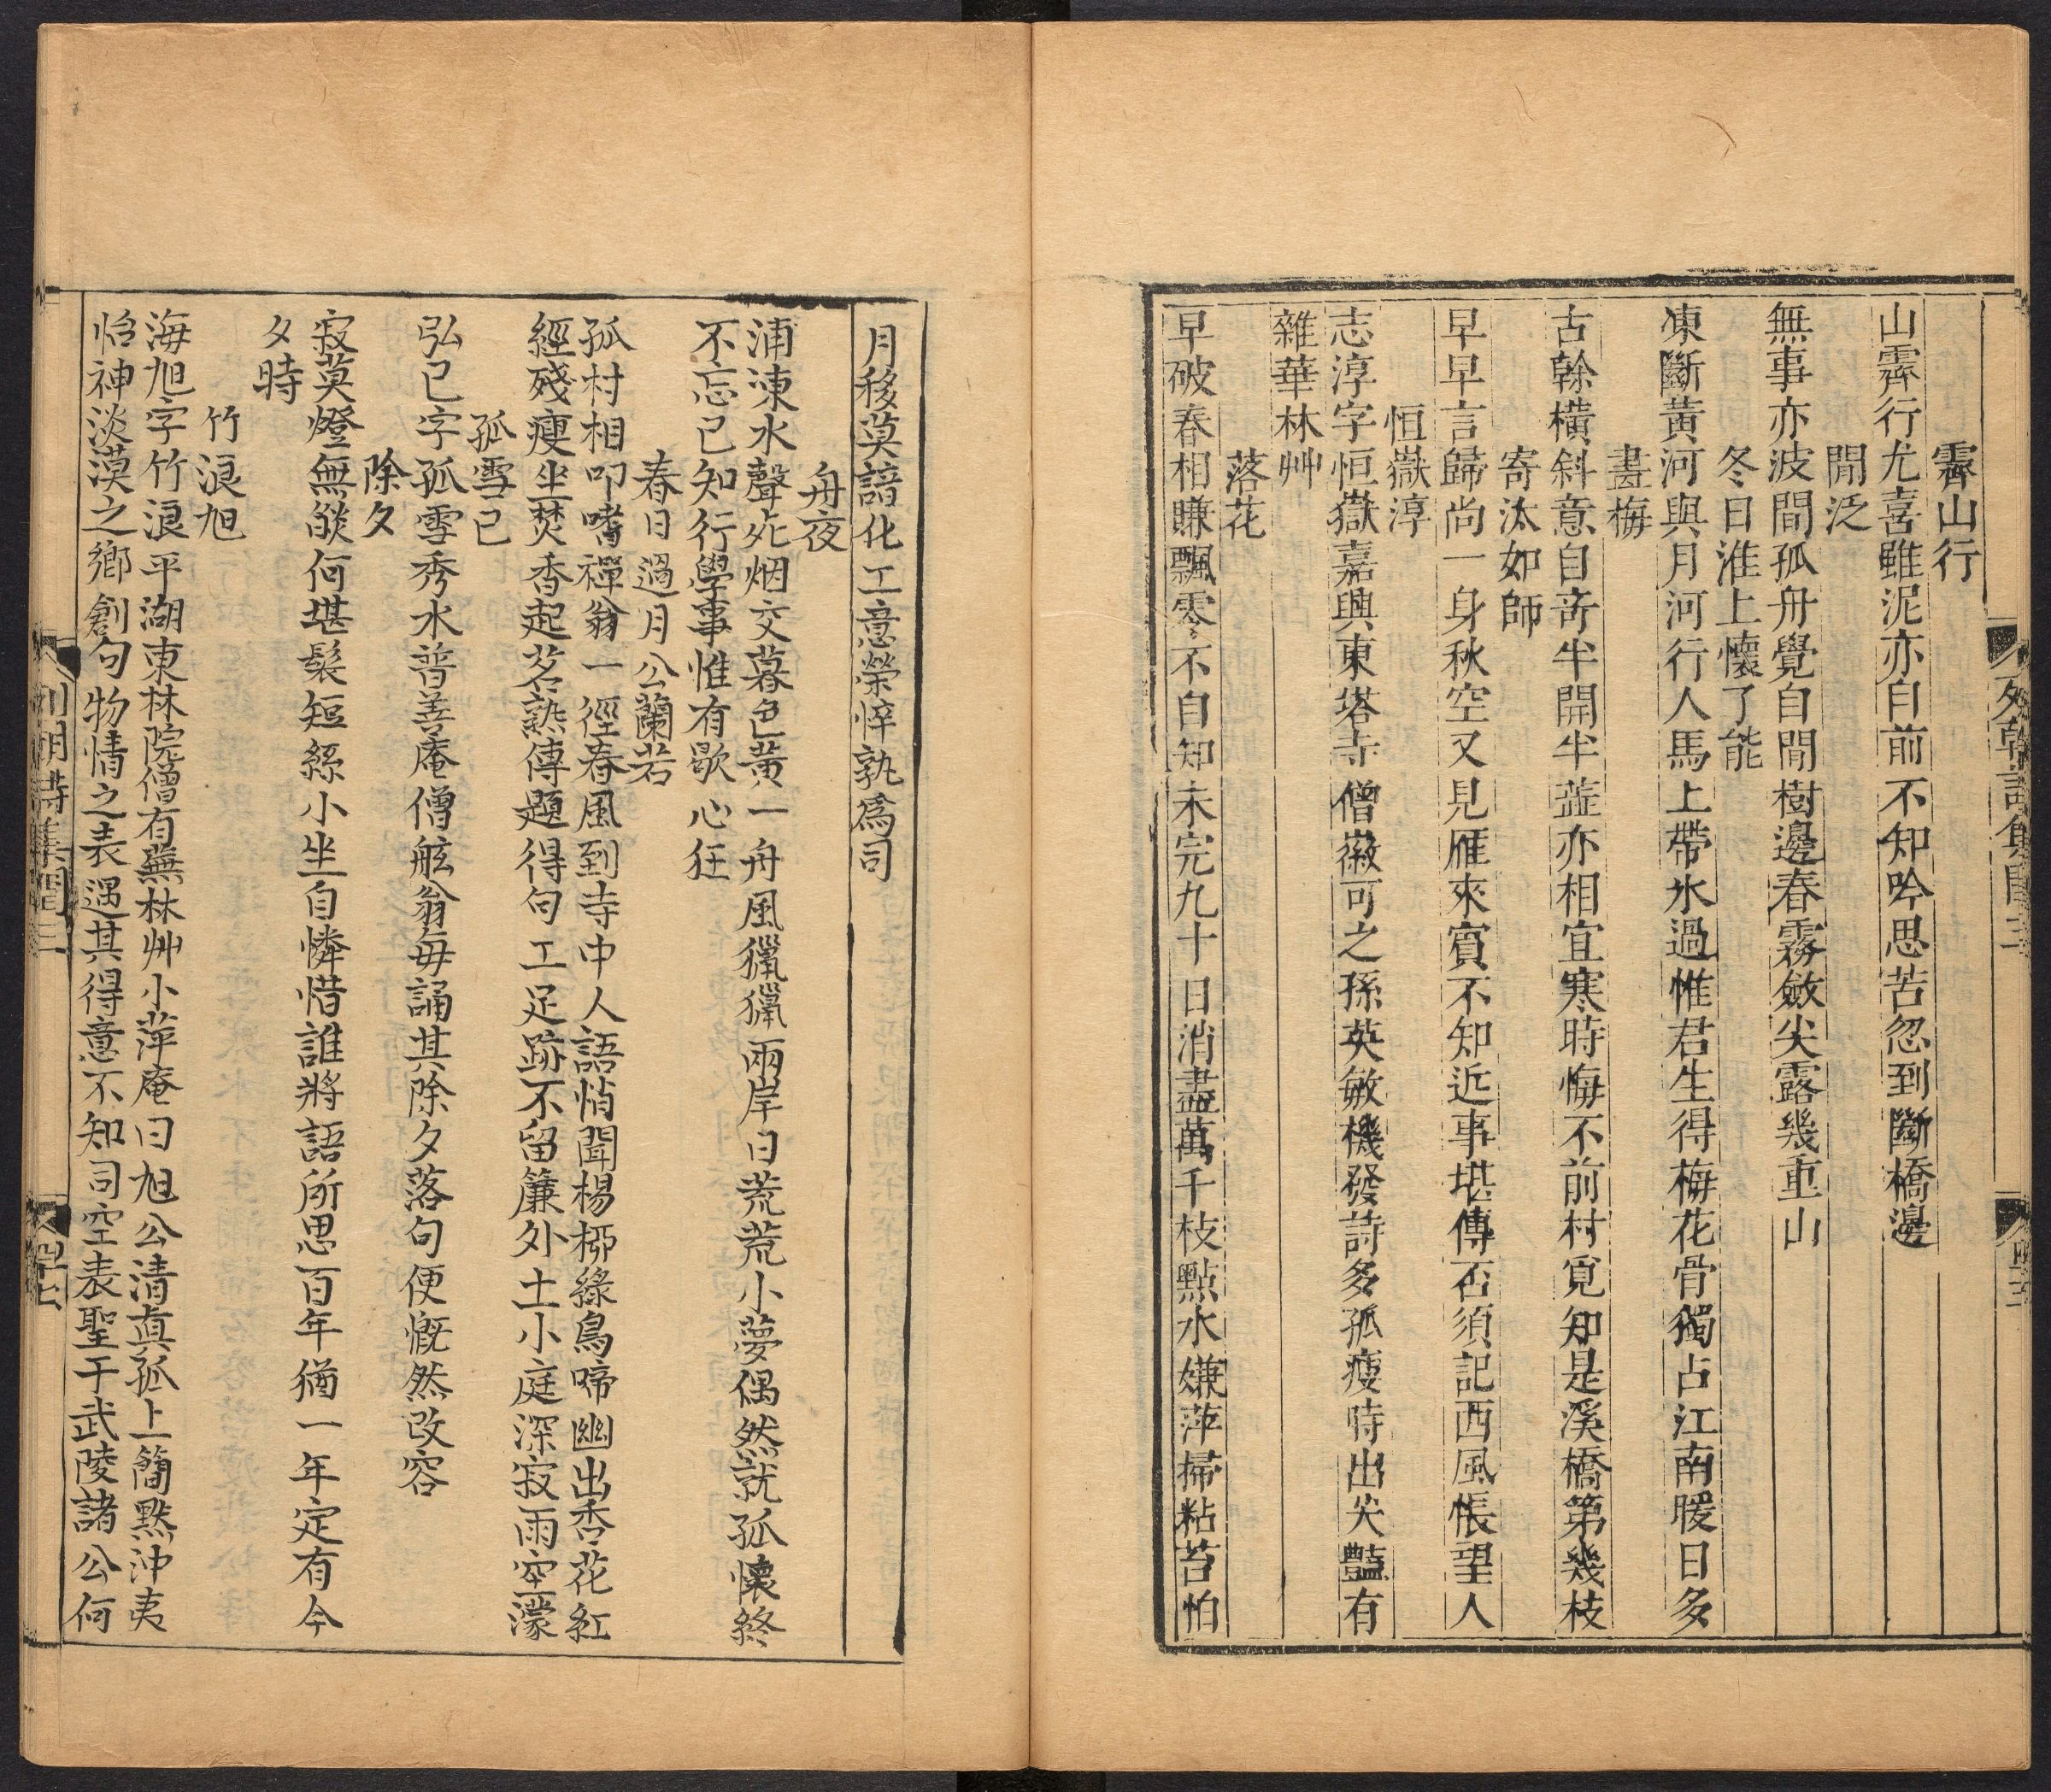 霽山行
山霽行尤喜雖泥亦自前不知吟思苦忽到斷橋邊
閒泛
無事亦波間孤舟覺自閒樹邊春霧斂尖露幾重山
冬日淮上懷了能
凍斷黃河與月河行人馬上帶氷過惟君生得梅花骨獨占江南暖日多
畫梅
古榦橫斜意自竒半開半蕋亦相宜寒時悔不前村覓知是溪橋第幾枝
寄汰如師
早早言歸尚一身秋空又見雁來賓不知近事堪傳否須記西風悵望人
恒嶽淳
志淳字恒嶽嘉興東塔寺僧徽可之孫英敏機發詩多孤瘦時出尖豔有
雜華林艸
落花
早破春相賺飄零不自知未完九十日消盡萬千枝點水嫌萍掃粘苔怕
月移莫諳化工意榮悴孰爲司
舟夜
浦凍水聲殀烟交暮色黃一舟風獵獵兩岸日荒荒小夢偶然就孤懷終
不忘已知行學事惟有歇心狂
春日過月公蘭若
孤村相叩嗜禪翁一徑春風到寺中人語悄聞楊桺綠鳥啼幽出杏花紅
經殘瘦坐焚香起茗熟傳題得句工足跡不留簾外土小庭深寂雨空濛
孤雪已
弘已字孤雪秀水普善庵僧舷翁每誦其除夕落句便慨然改容
除夕
寂莫燈無燄何堪髮短絲小坐自憐惜誰將語所思百年猶一年定有今
夕時
竹浪旭
海旭字竹浪平湖東林院僧有蕪林艸小萍庵曰旭公清眞孤上簡黙沖夷
怡神淡漠之鄉創句物情之表遇其得意不知司空表聖于武陵諸公何